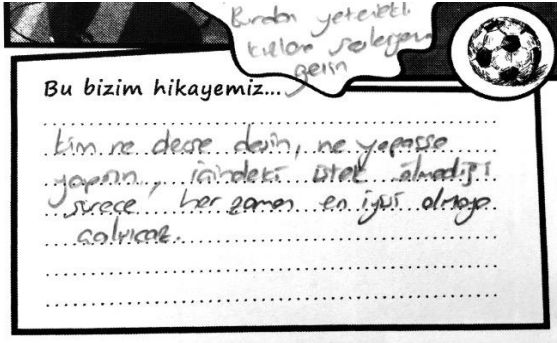 Burdan yetenekli
kızlara sesleniyorum
gelin
Bu bizim hikayemiz...
kim ne derse desin, ne yaparsa
yapsın, içindeki istek ölmediği
sürece, her zaman en iyisi olmaya
çalışıcaz.